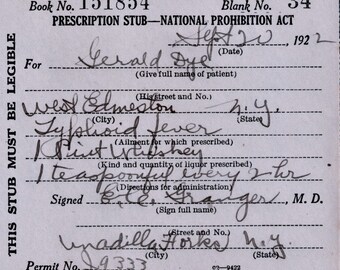 Book No. 151854 Blank No. 34
PRESCRIPTION STUB—NATIONAL PROHIBITION ACT
Sept 20, 1922
(Date)
For Gerald Dye
(Give full name of patient)
(High street and No.)
West Edmeston N.Y.
(City) (State)
Typhoid Fever
(Ailment for which prescribed)
1 Pint Whiskey
(Kind and quantity of liquor prescribed)
1 teaspoonful every 2 hr
(Directions for administration)
Signed E. C. Granger, M. D.
(Sign full name)
(Street and No.)
Unadilla Forks N.Y.
(City) (State)
Permit No. 19333
THIS STUB MUST BE LEGIBLE